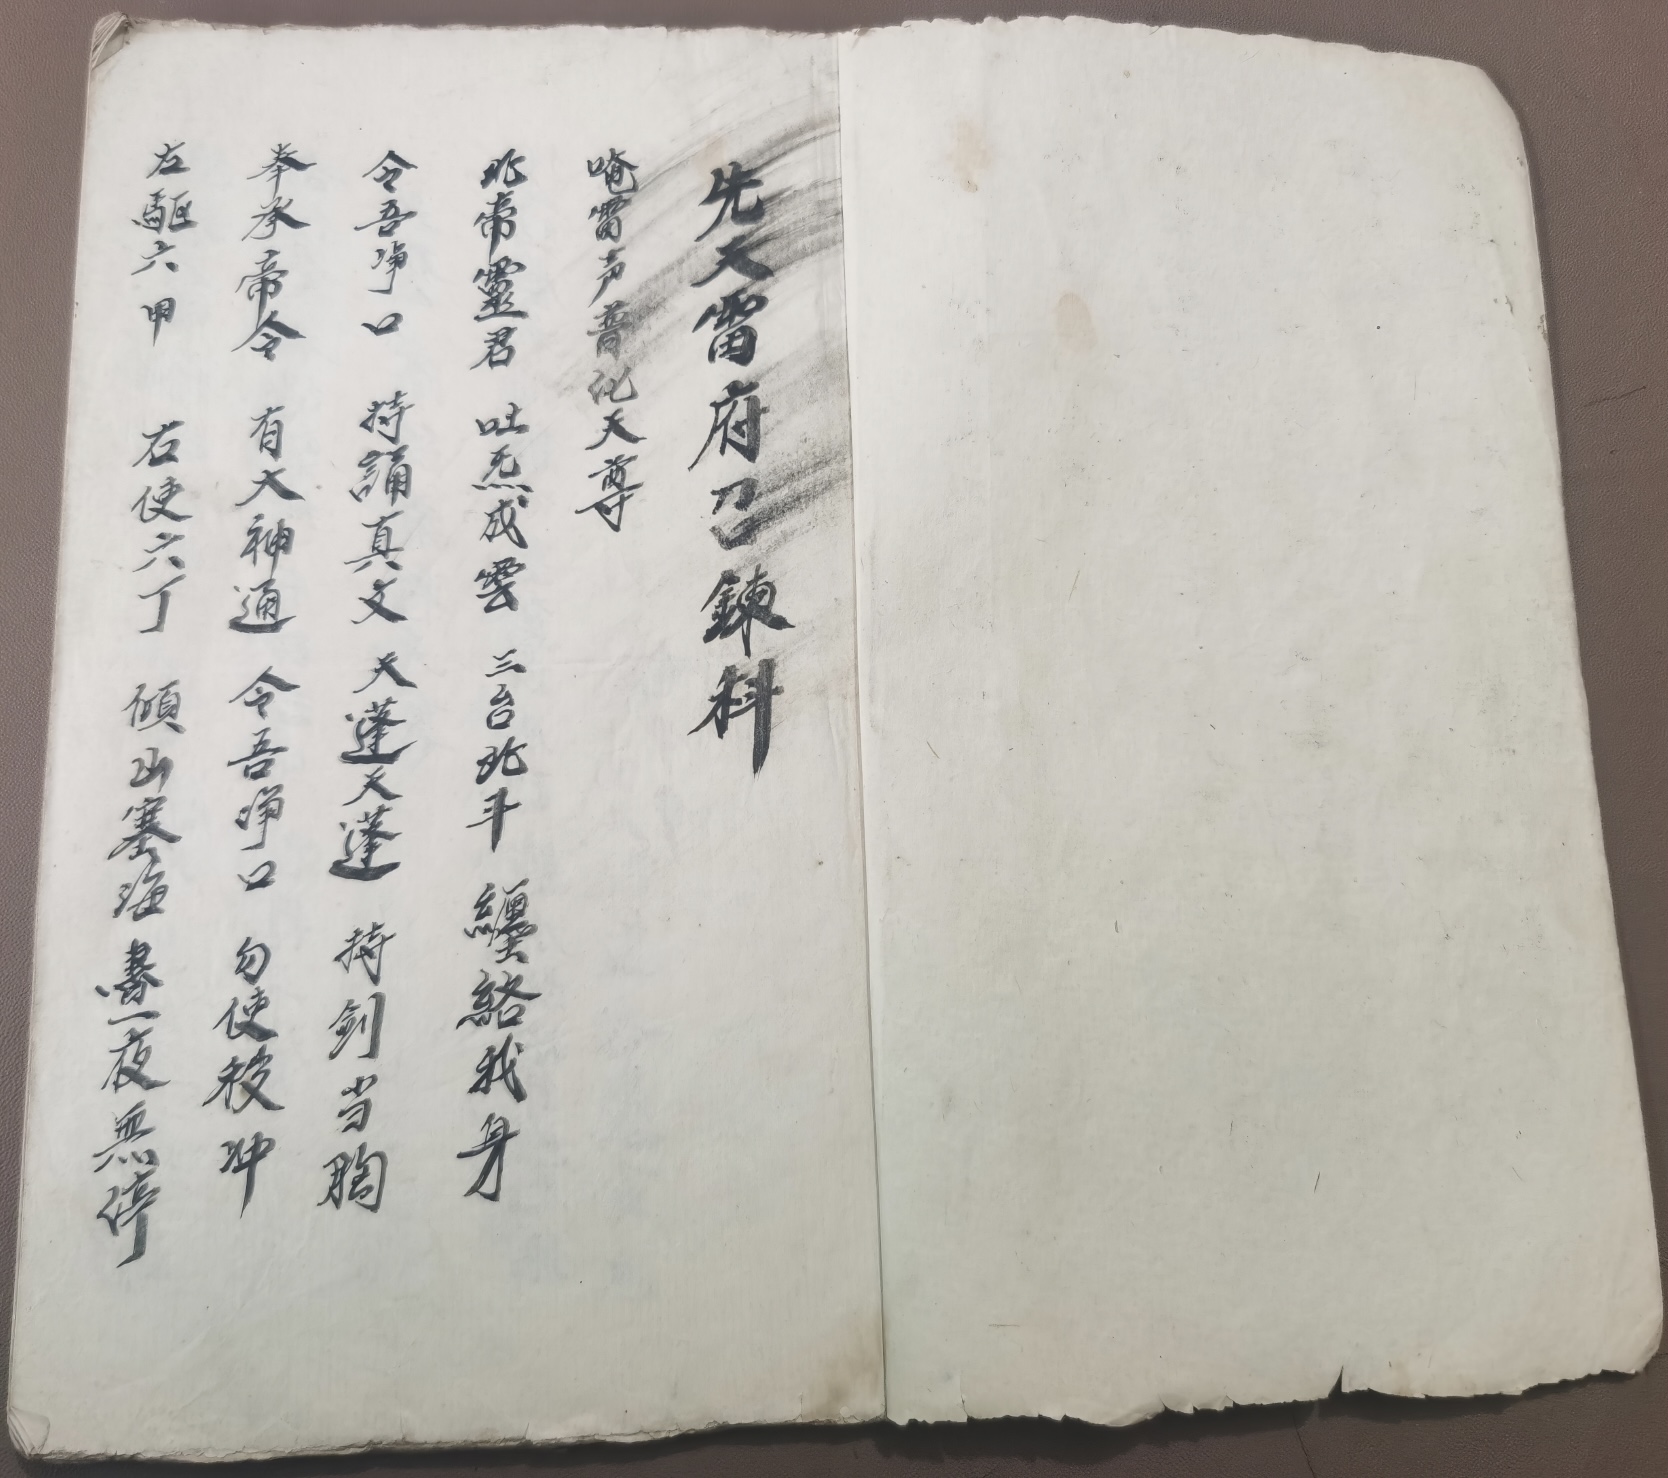 先天雷府召鍊科
唵雷声普化天尊
北帝靈君 吐炁成雲 三台北斗 纒絡我身
令吾净口 持誦真文 天蓬天蓬 持剑当胸
奉承帝令 有大神通 令吾净口 勿使移冲
左驅六甲 右使六丁 傾山塞海 晝夜無停